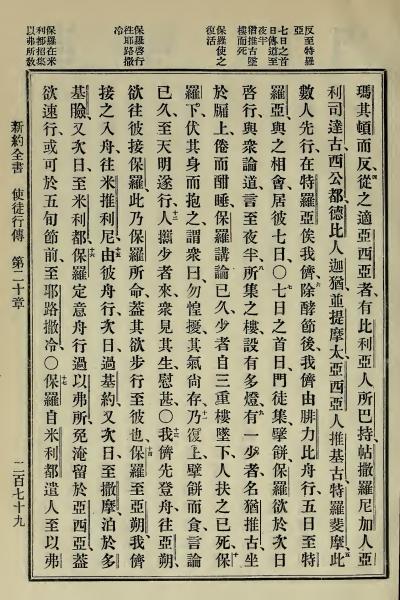 反至特羅
亞
七日之首
日傳道至
夜半
猶推古墜
樓而死
保羅使之
復活
保羅啓行
往耶路撒
冷
保羅在米
利都招集
以弗所教
瑪其頓而反、四從之適亞西亞者、有比利亞人所巴持、帖撒羅尼加人亞
利司達古、西公都、德比人迦猶並提摩太、亞西亞人推基古、特羅斐摩、五此
數人先行、在特羅亞俟我儕、六除酵節後、我儕由腓力比舟行、五日至特
羅亞、與之相會、居彼七日、〇七七日之首日、門徒集、擘餅、保羅欲於次日
啓行、與衆論道、言至夜半、八所集之樓設有多燈、九有一少者名猶推古、坐
於牖上、倦而酣睡、保羅講論已久、少者自三重樓墜下、人扶之已死、十保
羅下、伏其身而抱之、謂衆曰、勿惶擾、其氣尚存、十一乃復上、擘餅而食、言論
已久、至天明遂行、十二人攜少者來、衆見其生、慰甚、〇十三我儕先登舟往亞朔、
欲往彼接保羅、此乃保羅所命、蓋其欲步行至彼也、十四保羅至亞朔、我儕
接之入舟、往米推利尼、十五由彼舟行、次日過基約、又次日至撒摩、泊於多
基臉、又次日至米利都、十六保羅定意舟行過以弗所、免淹留於亞西亞、蓋
欲速行、或可於五旬節前、至耶路撒冷、〇十七保羅自米利都遣人至以弗
新約全書 使徒行傳 第二十章 二百七十九